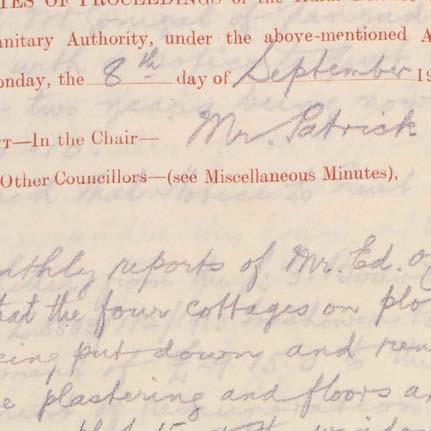 OF PROCEEDINGS of the Rural District
anitary Authority, under the above-mentioned A
onday, the 8th day of September 19
T—In the Chair— Mr. Patrick
Other Councillors—(see Miscellaneous Minutes),
nthly reports of Mr. Ed. O
hat the four cottages on plo
eing put down and ren
e plastering and floors a